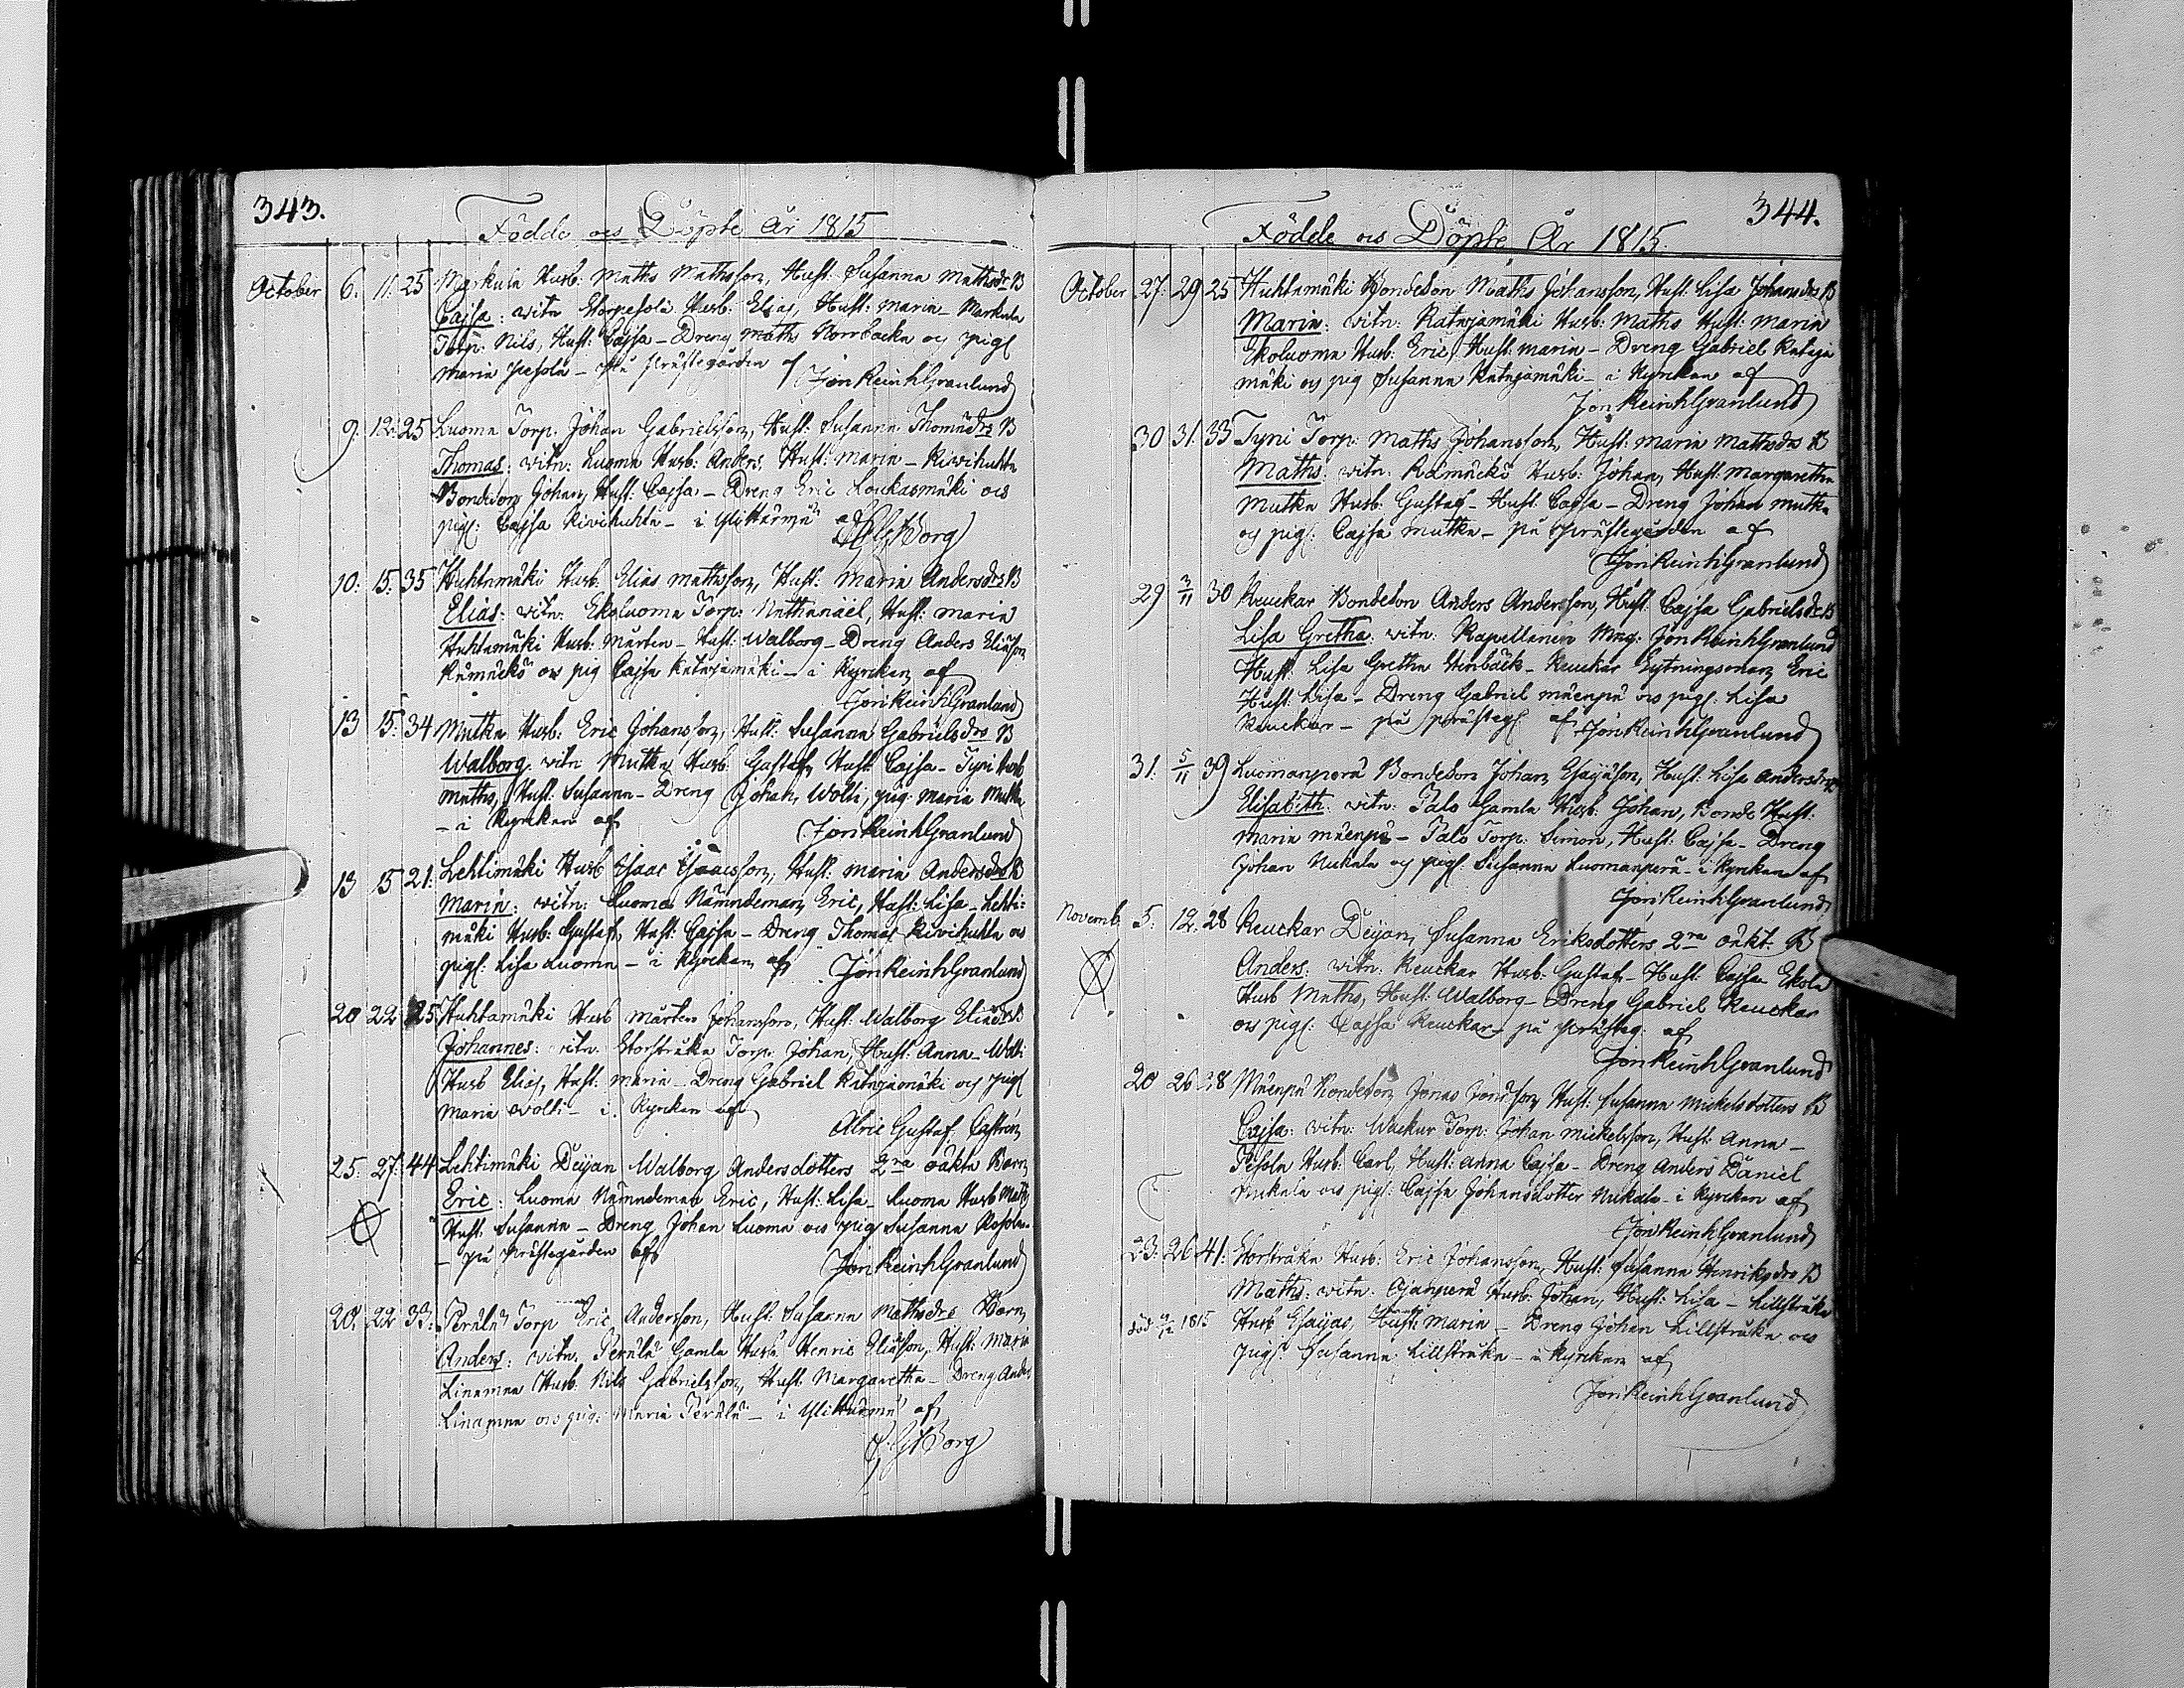 343.
Födde och Döpte År 1815
October 6. 11. 25 Markula Husb: Maths Mathsson, Hust: Susanna Mathsdr B
Cajsa: vitn Storpesola Husb: Elias, Hust: Maria - Markula
Torp: Nils, Hust: Cajsa - Dreng Maths Norrbacka och pig
Maria Pesola - På Prästegården af Jon Reinh Granlund
9. 12. 25 Luoma Torp. Johan Gabrielsson, Hust: Susanna Thomædrs B
Thomas: vitn: Luoma Husb: Anders, Hust: Maria - Kivihuhta
Bondeson Johan, Hust: Cajsa - Dreng Eric Loukasmäki och
pig: Cajsa Kivihuhta - i Ylihärmä af Borg
10: 15: 35 Huhtamäki Husb: Elias Mathsson, Hust: Maria Andersdrs B
Elias: vitn: Ekoluoma Torp: Nathanaël, Hust: Maria
Huhtamäki Husb: Mårten - Hust: Walborg - Dreng Anders Eliæson
Rämäckö och pig Cajsa Katajamäki - i Kyrckan af
Jon Reinh Granlund
13 15: 34 Mutka Husb: Eric Johansson, Hust: Susanna Gabrielsdrs B
Walborg. vitn Mutka Husb: Gustaf, Hust: Cajsa - Tyni Husb
Maths, Hust: Susanna - Dreng Johan Wolti, pig: Maria Mutka
- i Kyrckan af Jon Reinh Granlund
13 15 21: Lehtimäki Husb Isaac Isaacsson, Hust: Maria Andersdrs B
Maria: vitn: Luoma Nämndeman Eric, Hust: Lisa - Lehti-
mäki Husb: Gustaf, Hust: Cajsa - Dreng Thomas Kivihuhta och
pig: Lisa Luoma - i Kyrckan af Jon Reinh Granlund
20 22 25 Huhtamäki Husb Mårten Johansson, Hust: Walborg Eliædr B
Johannes: vitn. Storstråka Torp: Johan, Hust: Anna - Wolti
Husb Elias, Hust: Maria - Dreng Gabriel Katajamäki och pig
Maria Wolti - i Kyrckan af
Alric Gustaf Castrén
25. 27. 44 Lehtimäki Deijan Walborg Andersdotters 2ra oäkta Barn
Eric: Luoma Nämndeman Eric, Hust: Lisa - Luoma Husb Maths
Hust. Susanna - Dreng Johan Luoma och pig Susanna
- på Prästegården af Jon Reinh Granlund
20. 22 33: Perälä Torp Eric Andersson, Hust: Susanna Mathsdrs Barn
Anders: vitn. Perälä Gamla Husb Henric Eliæson, Hust: Maria
Linamaa Husb: Nils Gabrielsson, Hust Margaretha - Dreng Anders
Linamaa och pig: Maria Perälä - i Ylihärmä af
Borg
344.
Födde och Döpte År 1815.
October 27. 29 25 Huhtamäki Bondeson Maths Johansson, Hust: Lisa Johansdrs B
Maria: vitn: Katajamäki Husb: Maths Hust: Maria
Ekoluoma Husb: Eric, Hust: Maria - Dreng Gabriel Kataja
mäki och pig Susanna Katajamäki - i Kyrckan af
Jon Reinh Granlund
30 31. 33 Tyni Torp: Maths Johansson, Hust: Maria Mathsdrs B
Maths: vitn: Rämäckö Husb: Johan, Hust: Margaretha
Mutka Husb: Gustaf - Hust: Cajsa - Dreng Johan Mutka
och pig: Cajsa Mutka - på Prästegården af
Jon Reinh Granlund
29 3/11 30 Keuckar Bondeson Anders Andersson, Hust: Cajsa Gabrielsdr B
Lisa Gretha: vitn: Kapellanen Mag: Jon Reinh Granlund
Hust: Lisa Gretha Stenbäck - Keuckar Sytningsman Eric
Hust: Lisa - Dreng Gabriel Mäenpä och pig: Lisa
Keuckar - på prästeg: af Jon Reinh Granlund
31. 5/11 39 Luomanperä Bondeson Johan Esaiæson, Hust: Lisa Andersdr B
Elisabeth: vitn: Palo Gamla Husb: Johan, Bonde Hust:
Maria Mäenpä - Palo Torp: Simon, Hust: Cajsa - Dreng
Johan Nukala och pig: Susanna Luomanperä - i Kyrckan af
Jon Reinh Granlund
Novemb. 5. 12. 28 Keuckar Deijan, Susanna Eriksdotters 2ra oäkt: B
Anders: vitn: Keuckar Husb: Gustaf - Hust: Cajsa Ekola
Husb Maths, Hust: Walborg - Dreng Gabriel Keuckar
och pig: Cajsa Keuckar - på Prästeg: af
Jon Reinh Granlund
20 26 38 Mäenpä Bondeson Jonas Jonæson Hust: Susanna Mickelsdotters B
Cajsa: vitn: Wuckur Torp: Johan Mickelsson, Hust: Anna -
Pesola Husb: Carl, Hust: Anna Cajsa - Dreng Anders Daniel
Nukala och pig: Cajsa Johansdotter Nukala - i Kyrckan af
Jon Reinh Granlund
23: 26 41: Storstråka Husb: Eric Johansson, Hust: Susanna Henriksdrs B
Maths: vitn. Ojanperä Husb: Johan, Hust: Lisa - Lillstråka
1815 Husb Esaijas, Hust: Maria - Dreng Johan Lillstråka och
pig: Susanna Lillstråka - i Kyrckan af
Jon Reinh Granlund